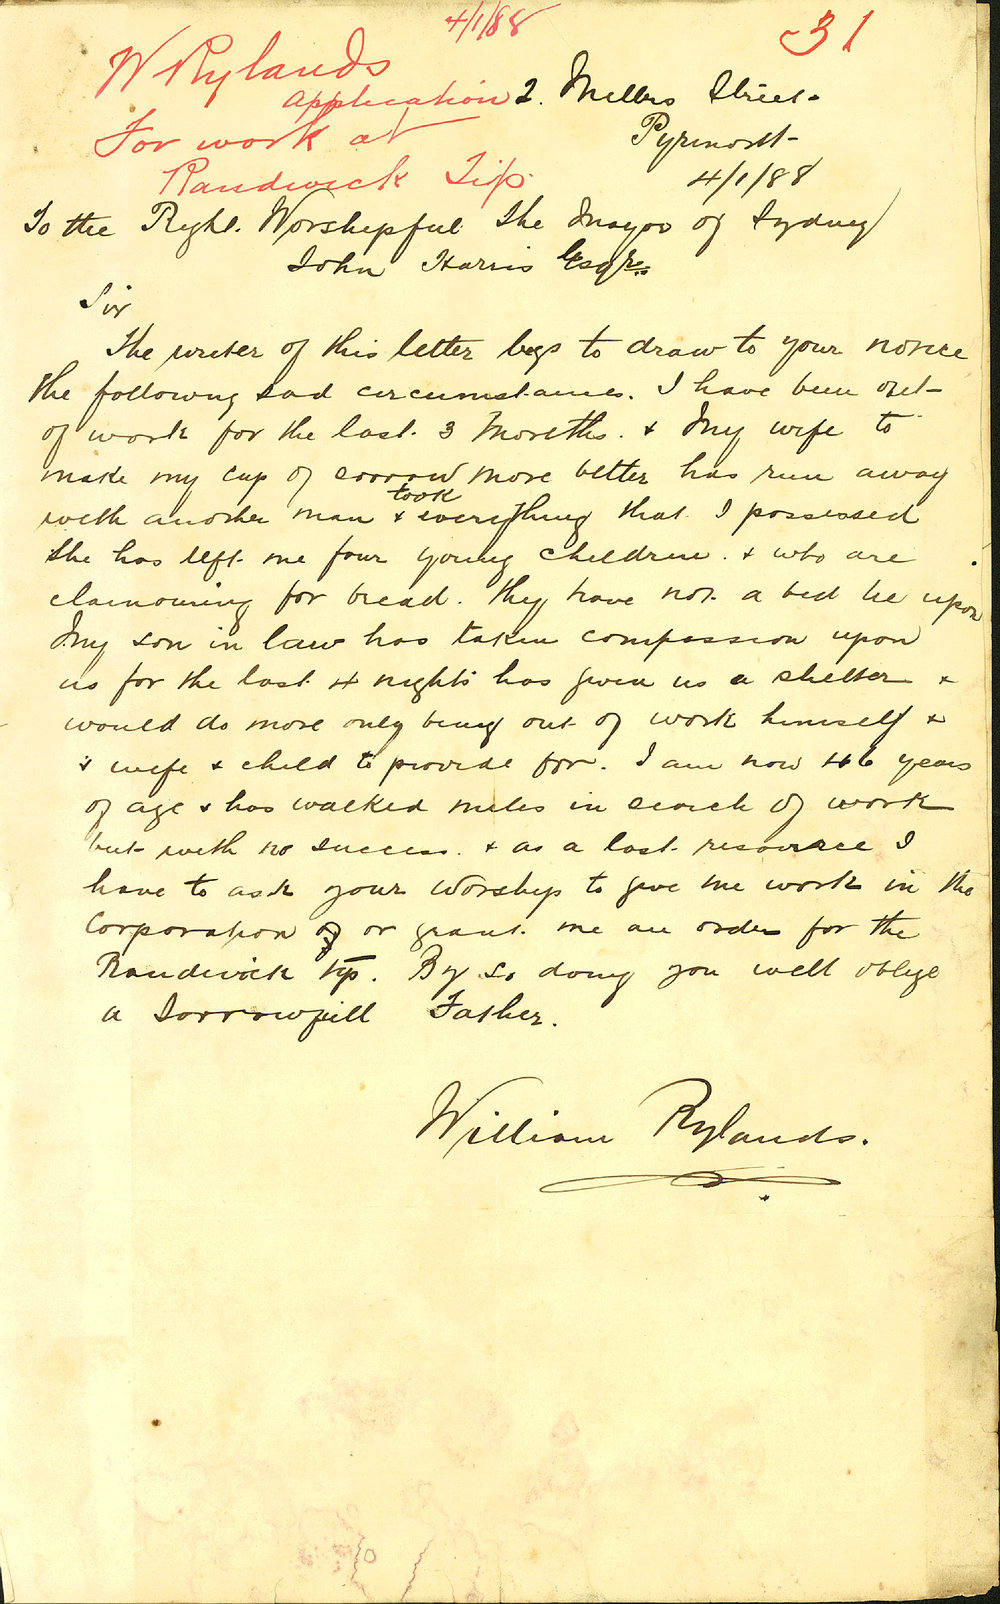 4/1/88
31
W Rylands
application
For work at
Randwick Tip
2. Millers Street
Pyrmont
4/1/88
To the Right. Worshipful the Mayor of Sydney
John Harris Esqr.
Sir
The writer of this letter begs to draw to your notice
the following sad circumstances. I have been out
of work for the last 3 Months. & My wife to
make my cup of sorrow more bitter has run away
with another man & took everything that I possessed
she has left me four young children. & who are
clamouring for bread. they have not a bed lie upon
My son in law has taken compassion upon
us for the last 4 nights has given us a shelter &
would do more only being out of work himself &
& wife & child to provide for. I am now 46 years
of age & has walked miles in search of work
but with no success. & as a last resource I
have to ask your Worship to give me work in the
Corporation of or grant me an order for the
Randwick tip. By so doing you will oblige
a Sorrowfull Father.
William Rylands.